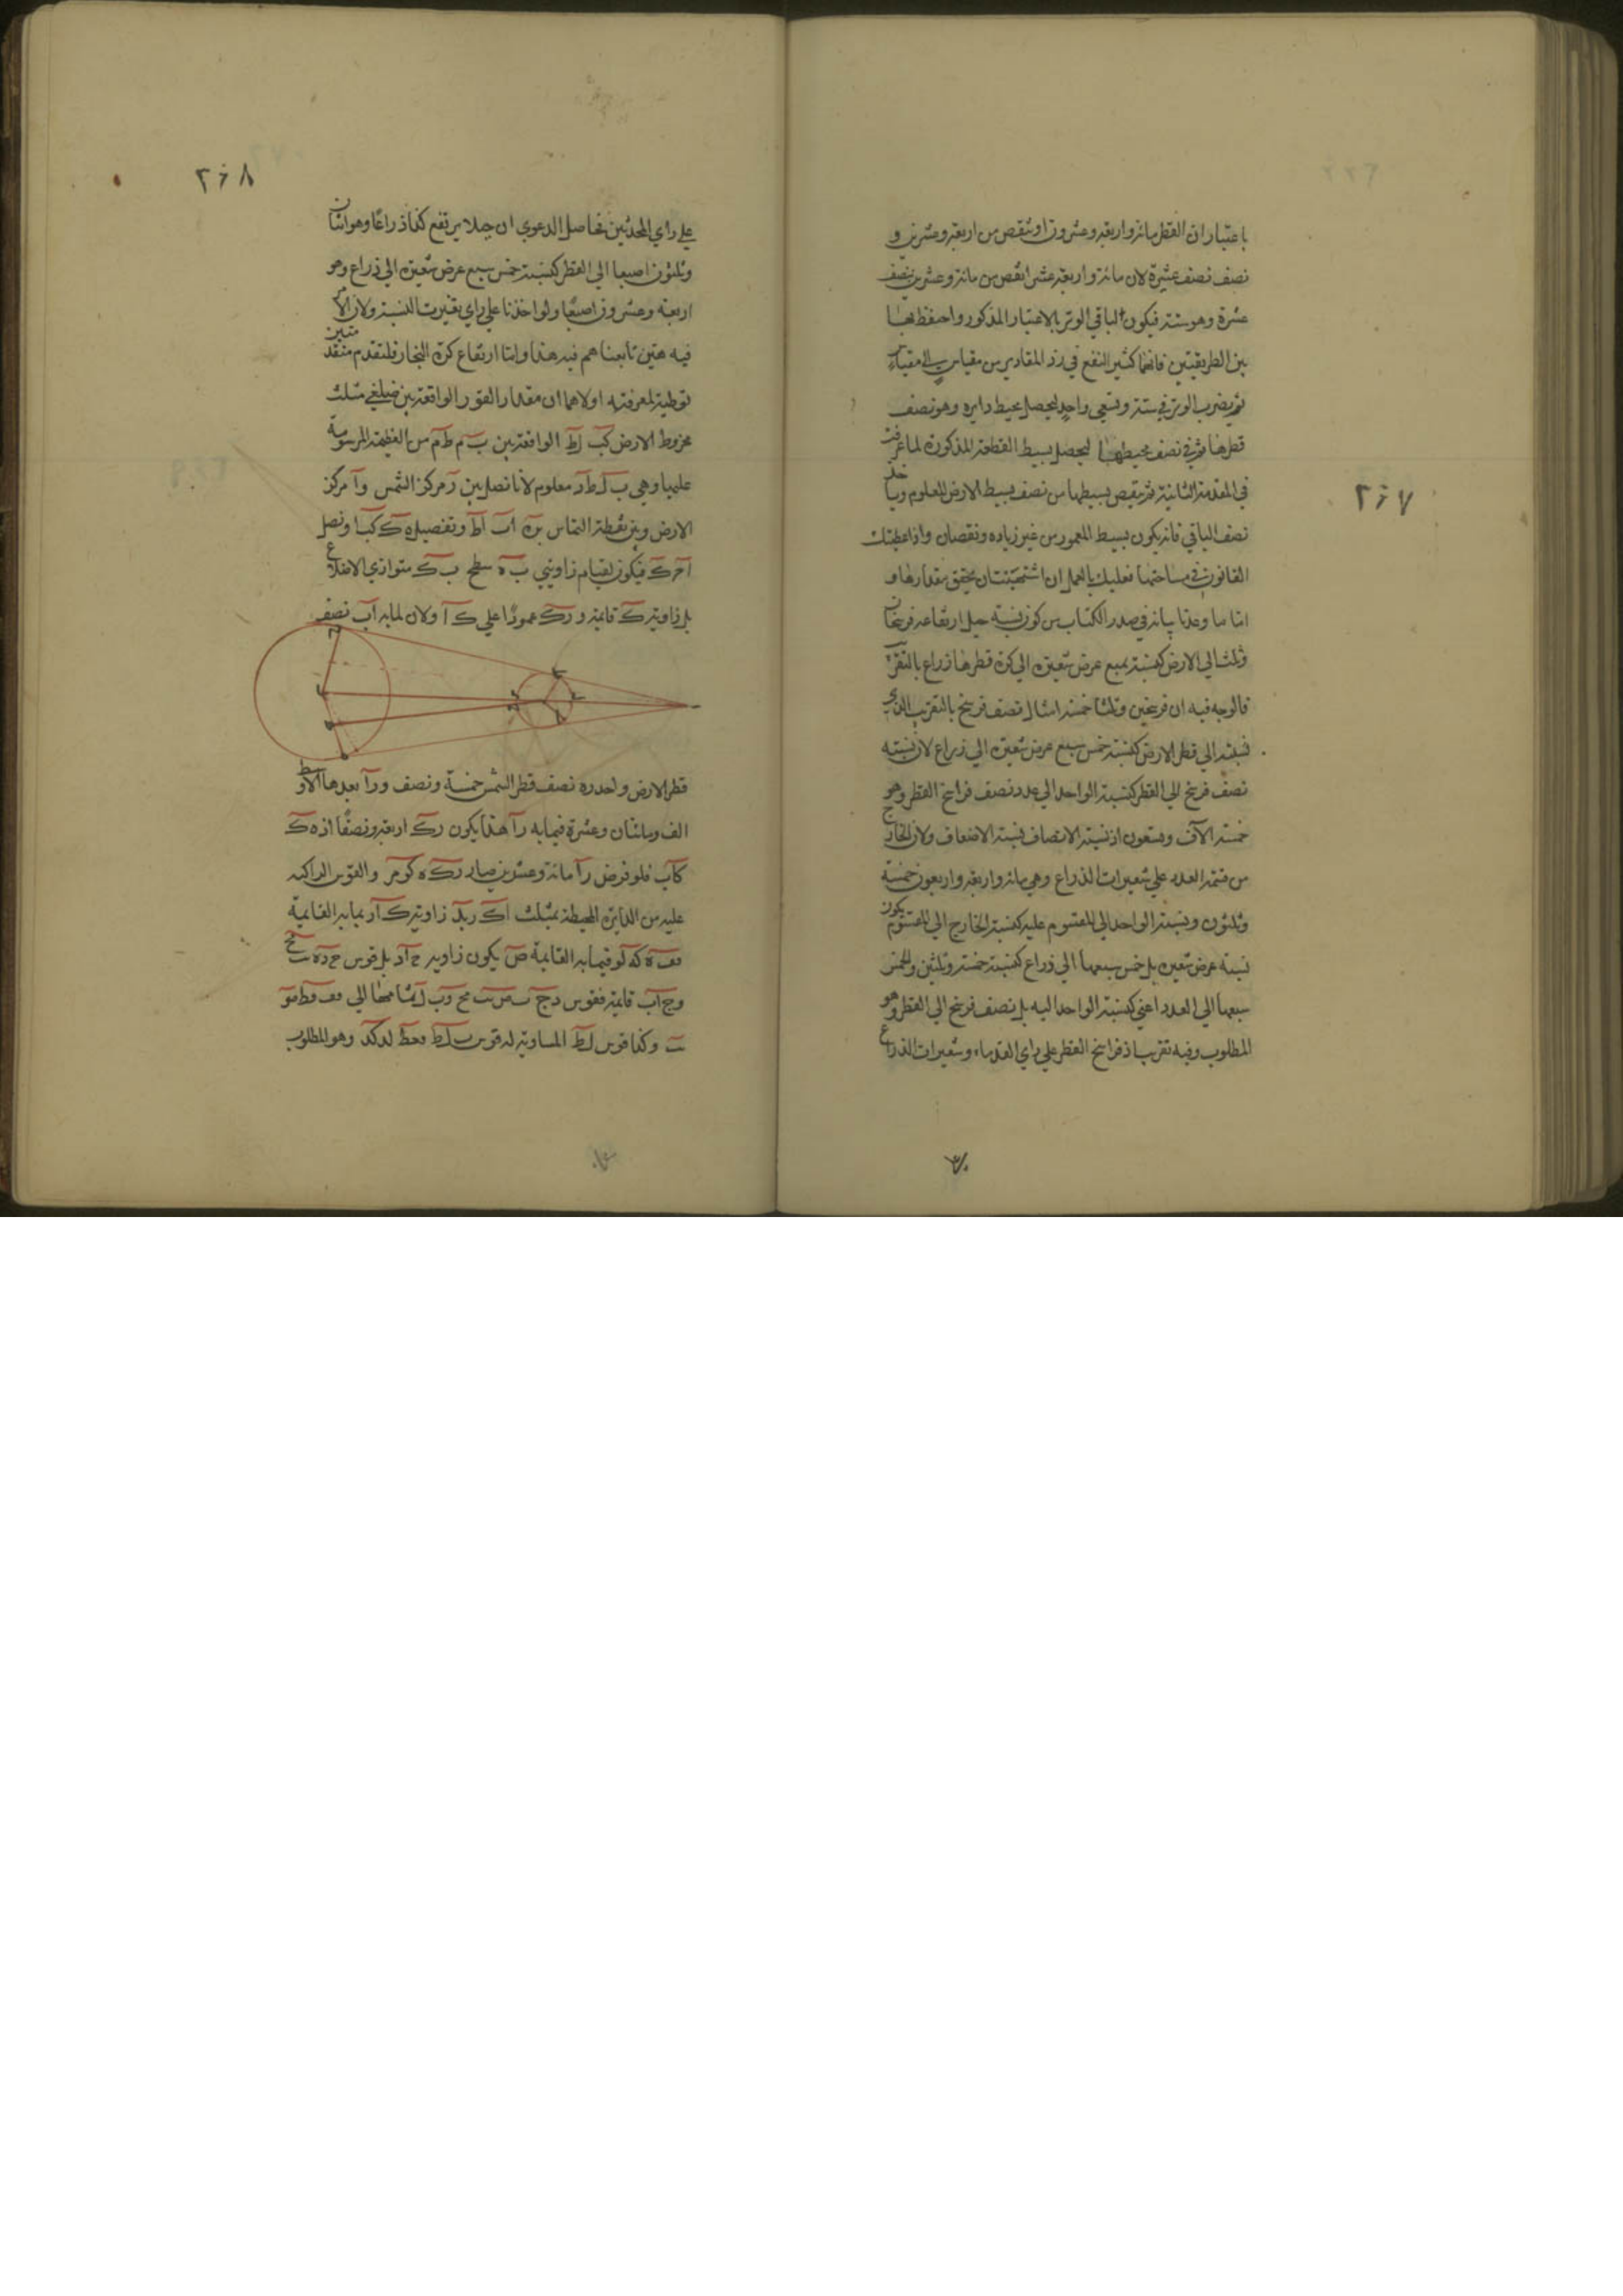 باعتبار ان القطر مائة واربعة وعشرون او ينقص من اربعة وعشرين و
نصف نصف عشيرة لان مائة واربعة عشر انقص من مائة وعشرين بنصف
عشرة وهو ستة فيكون الباقي الوتر بالاعتبار المذكور واحفظ
بين الطريقتين فانهما كثير النفع في رد المقادير من مقياس الى مقياس
ثم يضرب الوتر في ستة وسعى واحد ليحصل محيط دايرة وهو نصف
قطرها ثم في نصف محيطها ليحصل بسيط القطعة المذكورة لما عرفت
في المقدمة الثانية ثم ينقص بسيطها من نصف بسيط الارض المعلوم
نصف الباقي فانه يكون بسيط المعمور من غير زياده ونقصان واذ اعطيتك
القانون في مساحتها فعليك بالعمل ان اشتهيت تحقق مقدارها و
اما ما وعدنا بيانه في صدر الكتاب من كون نسبة جبل ارتفاعه فرسخان
وثلث الى الارض كنسبة سبع عرض شعيرة الى كرة قطرها ذراع بالتقريب
فالوجه فيه ان فرسخين وثلثا خمسة امثال نصف فرسخ بالتقريب الذي
نسبته الى قطر الارض كنسبة خمس سبع عرض شعيرة الى ذراع لان نسبته
نصف فرسخ الى القطر كنسبة الواحد الى عدد نصف فراسخ القطر وهو
خمسة الآف وتسعون اذ نسبة الانصاف نسبة الاضعاف ولان الخارج
من قسمة العدد على شعيرات الذراع وهي مائة واربعة واربعون خمسة
وثلثون ونسبة الواحد الى المقسوم عليه كنسبة الخارج الى المقسوم يكون
نسبة عرض شعيرة بل خمس سبعها الى ذراع كنسبة خمسة وثلثين والخمس
سبعها الى العدد اعني كنسبة الواحد اليه بل نصف فرسخ الى القطر وهو
المطلوب وفيه تقريب اذ فراسخ القطر على راي القدماء وشعيرات الذراع
٢٦٧
٢٦٨
على راي المحدثين فحاصل الدعوي ان جبلا يرتفع كذا ذراعا وهو اثنان
وثلثون اصبعا الى القطر كنسبة خمس سبع عرض شعيرة الى ذراع وهو
اربعة وعشرون اصبعا ولو اخذنا على راي تغيرت النسبة ولان الامر
فيه هين تابعناهم فيه هذا واما ارتفاع كرة البخار فلنقدم مقدمتين
توطية لمعرفته اولاهما ان مقدار القوس الواقعة بين ضلعي مثلث
مخروط الارض كب لط الواقعة بين ب م ط م من العظيمة المرسومة
عليها وهي ب ل ط د معلوم لانا نصل بين ر مركز الشمس و ا مركز
الارض وبين نقطة التماس ب ه اب اط وتفصيل ه ك كبا ونصل
ا ح ك فيكون لقيام زاويتي ب ه سطح ب ك متوازي الاضلاع
بل زاوية ك قايمة و رك عمودا على ك ا ولان لما به اب نصف
قطر الارض واحد ره نصف قطر الشمس خمسة ونصف و را بعدها الاوسط
الف ومائتان وعشرة فيما به را هذا يكون رك اربعة ونصفا اذ ه ك
كاب فلو فرض را مائة وعشرين صار رك ه كو مر والقوس الراكبه
عليه من الدايرة المحيطة بمثلث اك ر بل زاوية ك ار بما به القايمة
يكون زاوية ح اد بل قوس ح د
و ح اب قايمة فقوس د ح
وكذا قوس لط المساوية له قوس ب لط وهو المطلوب